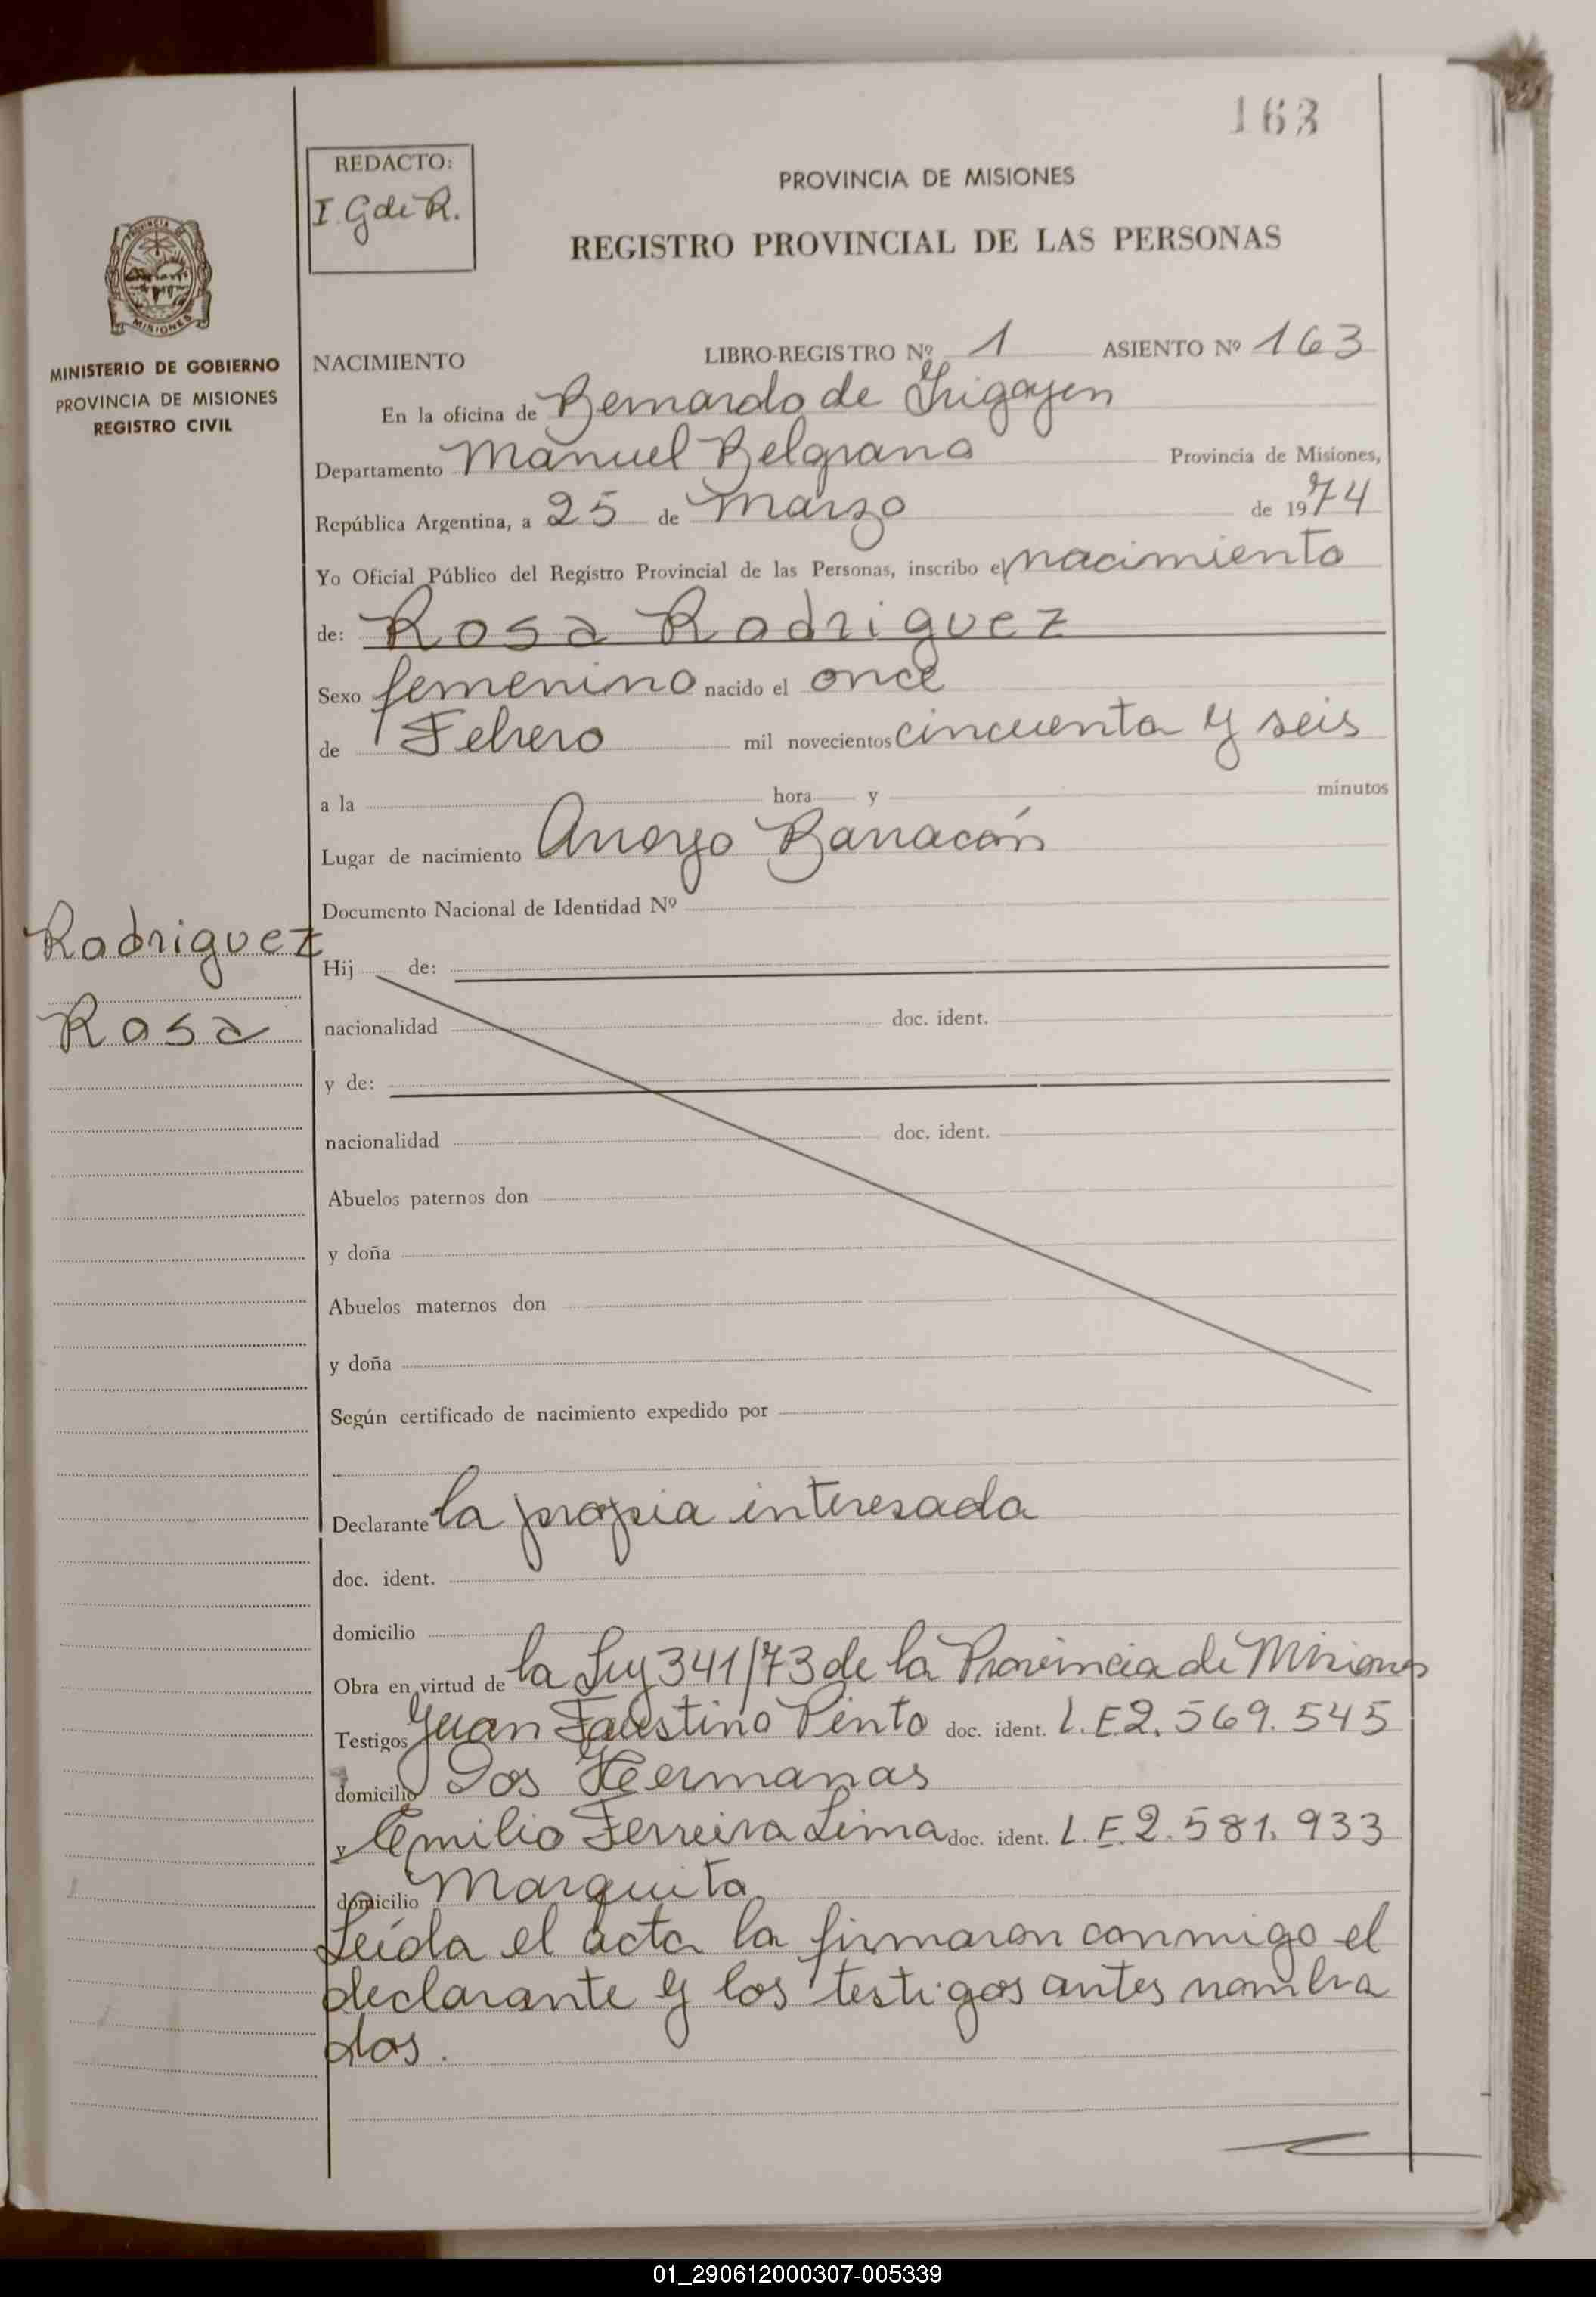 163
REDACTO:
I. G de R.
PROVINCIA DE MISIONES
REGISTRO PROVINCIAL DE LAS PERSONAS
PROVINCIA DE
MISIONES
MINISTERIO DE GOBIERNO
PROVINCIA DE MISIONES
REGISTRO CIVIL
NACIMIENTO LIBRO-REGISTRO Nº 1 ASIENTO Nº 163
En la oficina de Bernardo de Irigoyen
Departamento Manuel Belgrano Provincia de Misiones,
República Argentina, a 25 de Marzo de 1974
Yo Oficial Público del Registro Provincial de las Personas, inscribo el nacimiento
de: Rosa Rodriguez
Sexo femenino nacido el once
de Febrero mil novecientos cincuenta y seis
a la hora y minutos
Lugar de nacimiento Arroyo Barracón
Documento Nacional de Identidad Nº
Rodriguez
Rosa
Hij de:
nacionalidad doc. ident.
y de:
nacionalidad doc. ident.
Abuelos paternos don
y doña
Abuelos maternos don
y doña
Según certificado de nacimiento expedido por
Declarante la propia interesada
doc. ident.
domicilio
Obra en virtud de la Ley 341/73 de la Provincia de Misiones
Testigos Juan Faustino Pinto doc. ident. L.E 2.569.545
domicilio Dos Hermanas
y Emilio Ferreira Lima doc. ident. L.E. 2.581.933
domicilio Marquita
Leída el acta la firmaron conmigo el
declarante y los testigos antes nombra
dos.
01_290612000307-005339